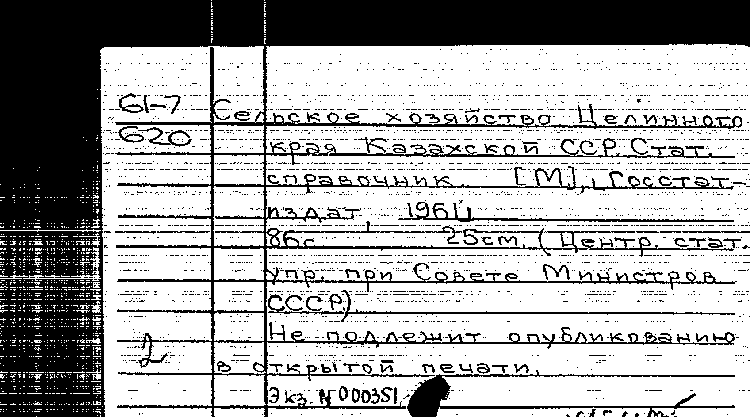 61-7 Сельское хозяйство Целинного
620 края Казахской ССР. Стат.
справочник. [М], Госстат-
издат, 1961
86с 25cm. (Центр. стат.
упр. при Совете Министров
СССР).
Не подлежит опубликованию
2 в открытой печати.
Экз. N 000351